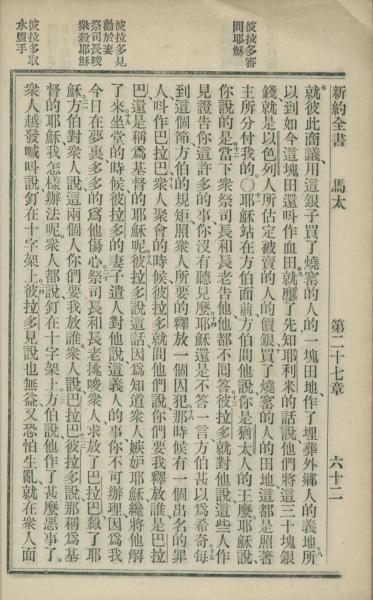 新約全書　馬太　第二十七章　六十二
彼拉多審
問耶穌
彼拉多見
勸於妻
祭司長唆
衆殺耶穌
彼拉多取
水盥手
就彼此商議用這銀子買了燒窰的人的一塊田地作了埋葬外鄉人的義地所
以到如今這塊田還呌作血田就應了先知耶利米的話說他們將這三十塊銀
錢就是以色列人所估定被賣的人的價銀買了燒窰的人的田地這都是照著
主所分付我的〇耶穌站在方伯面前方伯問他說你是猶太人的王麽耶穌說
你說的是當下衆祭司長和長老告他他都不回答彼拉多就對他說這些人作
見證告你這許多的事你沒有聽見麽耶穌還是不答一言方伯甚以爲希奇每
到這個節方伯的規矩照衆人所要的釋放一個囚犯那時候有一個出名的罪
人呌作巴拉巴衆人聚會的時候彼拉多就問他們說你們要我釋放誰是巴拉
巴還是稱爲基督的耶穌呢彼拉多說這話因爲知道衆人嫉妒耶穌纔將他解
了來坐堂的時候彼拉多的妻子遣人對他說這義人的事你不可辦理因爲我
今日在夢裏多多的爲他傷心祭司長和長老挑唆衆人求放了巴拉巴殺了耶
穌方伯對衆人說這兩個人你們要我放誰衆人說巴拉巴彼拉多說那稱爲基
督的耶穌我怎樣辦法呢衆人都說釘在十字架上方伯說他作了甚麽惡事了
衆人越發喊呌說釘在十字架上彼拉多見說也無益又恐怕生亂就在衆人面